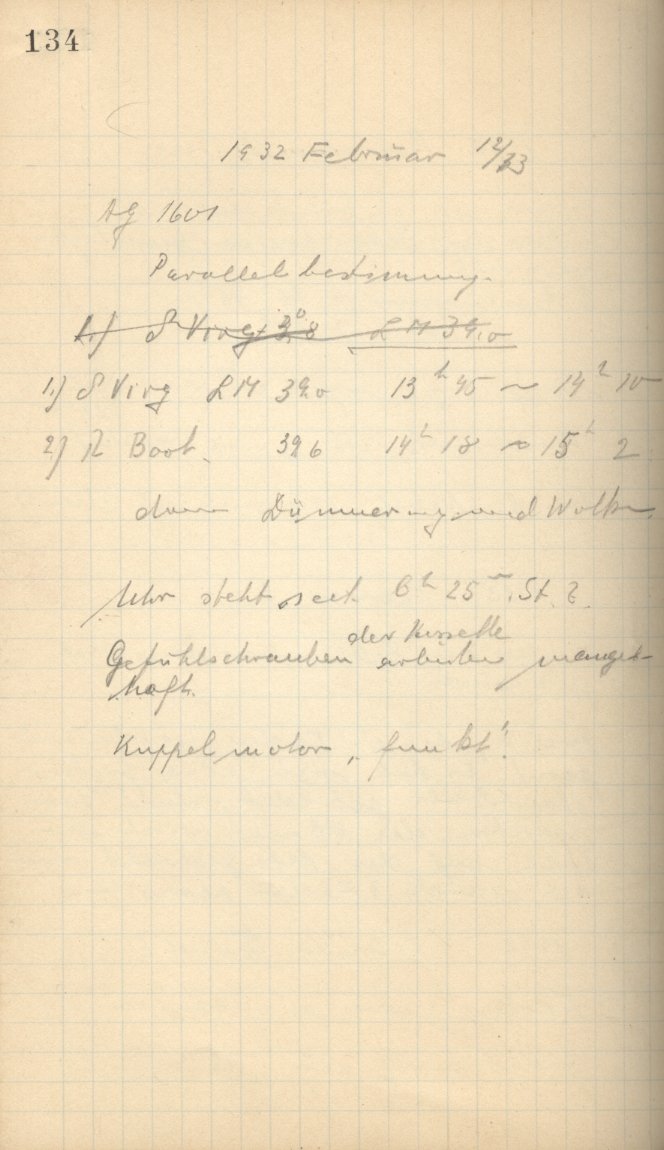 134
1932 Februar 12/13
AG 1601
Parallelbestimmung.
1.) δ Virg. 3.8 LM 39.0
1.) δ Virg LM 39.0 13h 45 ~ 14h 10
2.) R Boot. 39.6 14h 18 ~ 15h 2
dann Dämmerung und Wolken
Uhr steht seit 6h 25m St. Z.
der Kassette
Gefühlschrauben arbeiten mangel-
haft.
Kuppelmotor „funkt".